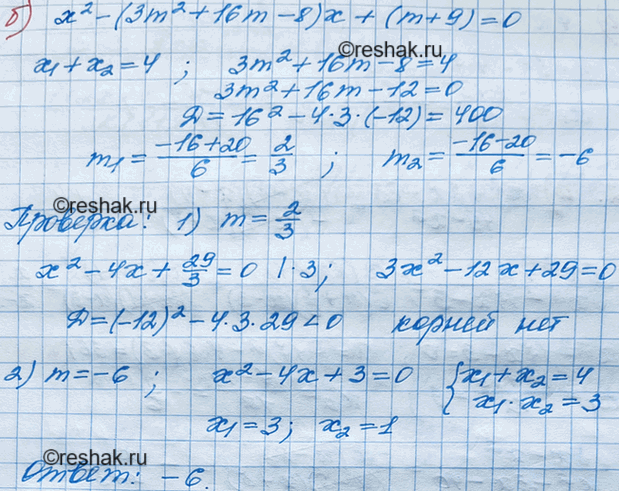 б) x² - (3m² + 16m - 8)x + (m + 9) = 0
©reshak.ru
x₁ + x₂ = 4 ; 3m² + 16m - 8 = 4
3m² + 16m - 12 = 0
D = 16² - 4·3·(-12) = 400
m₁ = (-16+20)/6 = 2/3 ; m₂ = (-16-20)/6 = -6
©reshak.ru
Проверка: 1) m = 2/3
x² - 4x + 29/3 = 0 |·3 ; 3x² - 12x + 29 = 0
D = (-12)² - 4·3·29 < 0 корней нет
2) m = -6 ; x² - 4x + 3 = 0 { x₁ + x₂ = 4
x₁·x₂ = 3
x₁ = 3 ; x₂ = 1
©reshak.ru
Ответ: -6.